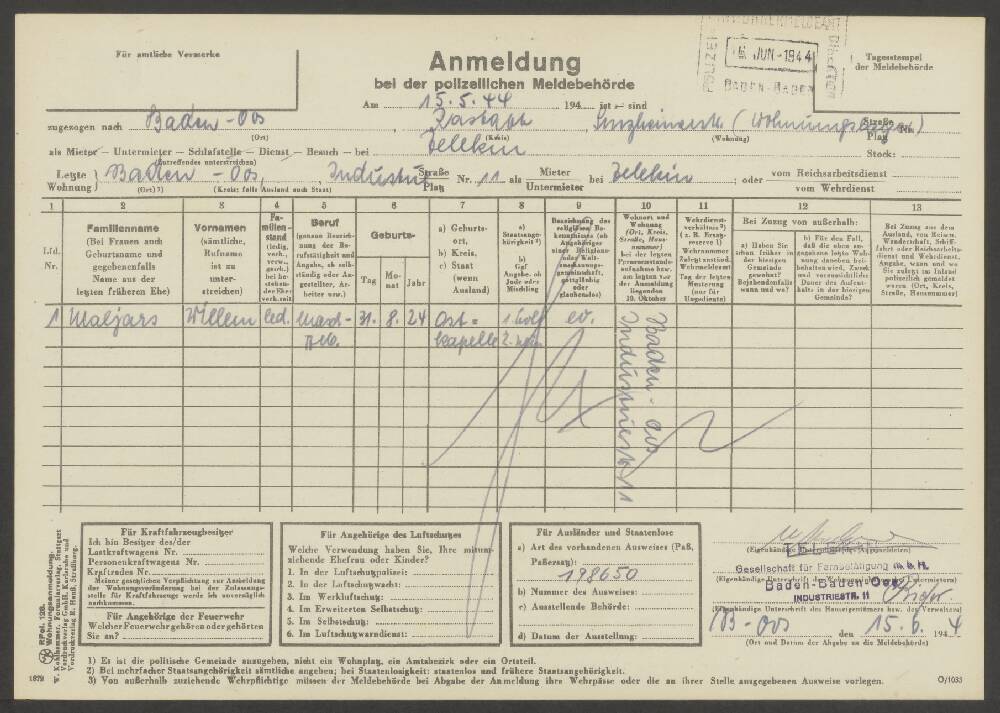 Für amtliche Vermerke
Anmeldung
bei der polizeilichen Meldebehörde
POLIZEI
JUN-1944
BADEN-BADEN
Tagesstempel
der Meldebehörde
Am 15.5.44 194 ist — sind
zugezogen nach Baden-Oos, Rastatt, (Wohnungslager) Straße Platz Nr.
(Ort) (Kreis) (Wohnung)
als Mieter – Untermieter – Schlafstelle – Dienst – Besuch – bei Telekin Stock:
(Zutreffendes unterstreichen)
Letzte Wohnung } Baden-Oos, Industrie Straße Platz Nr. 11 als Mieter Untermieter bei Telekin ; oder vom Reichsarbeitsdienst
vom Wehrdienst
(Ort) ²) (Kreis; falls Ausland auch Staat)
1 2 3 4 5 6 7 8 9 10 11 12 13
Lfd. Nr.
Familienname
(Bei Frauen auch
Geburtsname und
gegebenenfalls
Name aus der
letzten früheren Ehe)
Vornamen
(sämtliche,
Rufname
ist zu
unter-
streichen)
Fa-
milien-
stand
(ledig,
verh.,
verw.,
gesch.)
bei be-
stehen-
der Ehe
verh. seit
Beruf
(genaue Bezeich-
nung der Be-
rufstätigkeit und
Angabe, ob selb-
ständig oder An-
gestellter, Ar-
beiter usw.)
Geburts-
Tag
Mo-
nat
Jahr
a) Geburts-
ort,
b) Kreis,
c) Staat
(wenn
Ausland)
a)
Staatsange-
hörigkeit ²)
b)
Ggf.
Angabe, ob
Jude oder
Mischling
Bezeichnung des
religiösen Be-
kenntnisses (ob
Angehöriger
einer Religions-
oder Welt-
anschauungs-
gemeinschaft,
gottgläubig
oder
glaubenslos)
Wohnort und
Wohnung
(Ort, Kreis,
Straße, Haus-
nummer)
bei der letzten
Personenstands-
aufnahme bzw.
am letzten vor
der Anmeldung
liegenden
10. Oktober
Wehrdienst-
verhältnis ³)
(z. B. Ersatz-
reserve I)
Wehrnummer
Zuletzt zuständ.
Wehrmeldeamt
Tag der letzten
Musterung
(nur für
Ungediente)
Bei Zuzug von außerhalb:
a) Haben Sie
schon früher in
der hiesigen
Gemeinde
gewohnt?
Bejahendenfalls
wann und wo?
b) Für den Fall,
daß die oben an-
gegebene letzte Woh-
nung daneben bei-
behalten wird, Zweck
und voraussichtliche
Dauer des Aufent-
halts in der hiesigen
Gemeinde?
Bei Zuzug aus dem
Ausland, von Reisen,
Wanderschaft, Schiff-
fahrt oder Reichsarbeits-
dienst und Wehrdienst,
Angabe, wann und wo
Sie zuletzt im Inland
polizeilich gemeldet
waren (Ort, Kreis,
Straße, Hausnummer)
1 Maljars Willem led. Masch- 31. 8. 24 Ost= 1. holl ev.
kapelle 2. nein
Baden-Oos
Industriestr 11
RPol. 128.
Wohnungsanmeldung.
W. Kohlhammer, Formularverlag, Stuttgart
Vordruckverlag GmbH, Karlsruhe und
Vordruckverlag R. Hauß, Straßburg.
Für Kraftfahrzeugbesitzer
Ich bin Besitzer des/der
Lastkraftwagens Nr.
Personenkraftwagens Nr.
Kraftrades Nr.
Meiner gesetzlichen Verpflichtung zur Anmeldung
der Wohnungsveränderung bei der Zulassungs-
stelle für Kraftfahrzeuge werde ich unverzüglich
nachkommen.
Für Angehörige der Feuerwehr
Welcher Feuerwehr gehören oder gehörten
Sie an?
Für Angehörige des Luftschutzes
Welche Verwendung haben Sie, Ihre mitum-
ziehende Ehefrau oder Kinder?
1. In der Luftschutzpolizei:
2. In der Luftschutzwacht:
3. Im Werkluftschutz:
4. Im Erweiterten Selbstschutz:
5. Im Selbstschutz:
6. Im Luftschutzwarndienst:
Für Ausländer und Staatenlose
a) Art des vorhandenen Ausweises (Paß,
Paßersatz):
198650
b) Nummer des Ausweises:
c) Ausstellende Behörde:
d) Datum der Ausstellung:
(Eigenhändige Unterschrift des Anzumeldenden)
Gesellschaft für Fernbetätigung m.b.H.
(Eigenhändige Unterschrift des Wohnungsinhabers bzw. Untermieters)
Baden-Baden-Oos
INDUSTRIESTR. 11
(Eigenhändige Unterschrift des Hauseigentümers bzw. des Verwalters)
B-Oos den 15.6. 1944
(Ort und Datum der Abgabe an die Meldebehörde)
1) Es ist die politische Gemeinde anzugeben, nicht ein Wohnplatz, ein Amtsbezirk oder ein Ortsteil.
2) Bei mehrfacher Staatsangehörigkeit sämtliche angeben; bei Staatenlosigkeit: staatenlos und frühere Staatsangehörigkeit.
3) Von außerhalb zuziehende Wehrpflichtige müssen der Meldebehörde bei Abgabe der Anmeldung ihre Wehrpässe oder die an ihrer Stelle ausgegebenen Ausweise vorlegen.
1872
O/1033